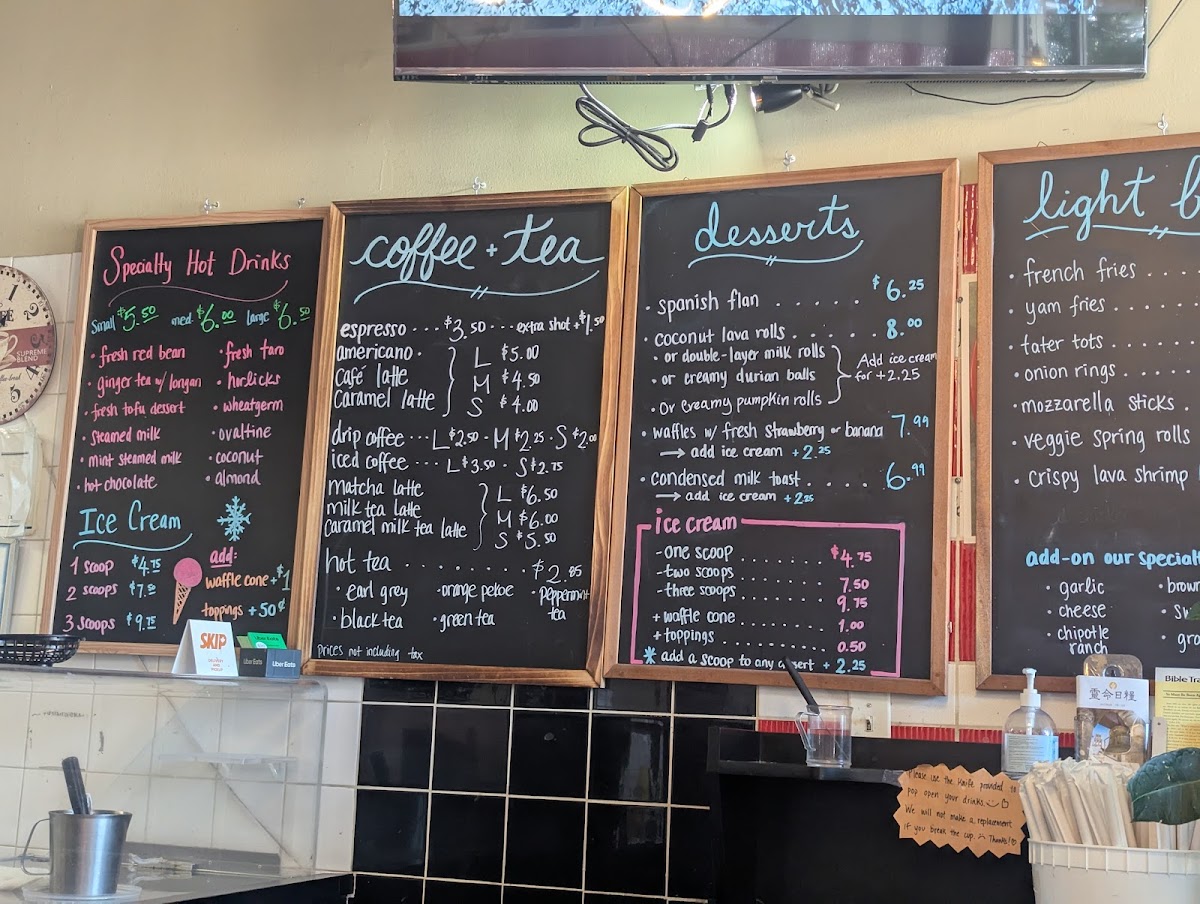 Specialty Hot Drinks
Small $5.50 med. $6.00 large $6.50
• fresh red bean
• ginger tea w/ longan
• fresh tofu dessert
• steamed milk
• mint steamed milk
• hot chocolate
• fresh taro
• horlicks
• wheatgerm
• ovaltine
• coconut
• almond
Ice Cream
1 scoop $4.75
2 scoops $7.50
3 scoops $9.75
add:
waffle cone +$1
toppings +50¢
coffee + tea
espresso ... $3.50 ... extra shot +$1.50
americano .
café latte
caramel latte
L $5.00
M $4.50
S $4.00
drip coffee ... L $2.50 · M $2.25 · S $2.00
iced coffee ... L $3.50 · S $2.75
matcha latte
milk tea latte
caramel milk tea latte
L $6.50
M $6.00
S $5.50
hot tea ......... $2.85
• earl grey • orange pekoe • peppermint tea
• black tea • green tea
Prices not including tax
desserts
• spanish flan ...... $6.25
• coconut lava rolls . 8.00
• or double-layer milk rolls
• or creamy durian balls
• Or creamy pumpkin rolls
Add ice cream
for +2.25
• waffles w/ fresh strawberry or banana 7.99
→ add ice cream +2.25
• condensed milk toast..... 6.99
→ add ice cream +2.25
ice cream
-one scoop .......... $4.75
-two scoops ......... 7.50
-three scoops ....... 9.75
+ waffle cone ........ 1.00
+ toppings .......... 0.50
* add a scoop to any + 2.25
light
• french fries ....
• yam fries ....
• tater tots ....
• onion rings ....
• mozzarella sticks .
• veggie spring rolls
• crispy lava shrimp
add-on our
• garlic
• cheese
• chipotle
ranch
SUPREME
BLEND
SKIP
Uber Eats
Uber Eats
靈命日糧
Please use the knife provided to
pop open your drinks.
We will not make a replacement
if you break the cup. Thanks!